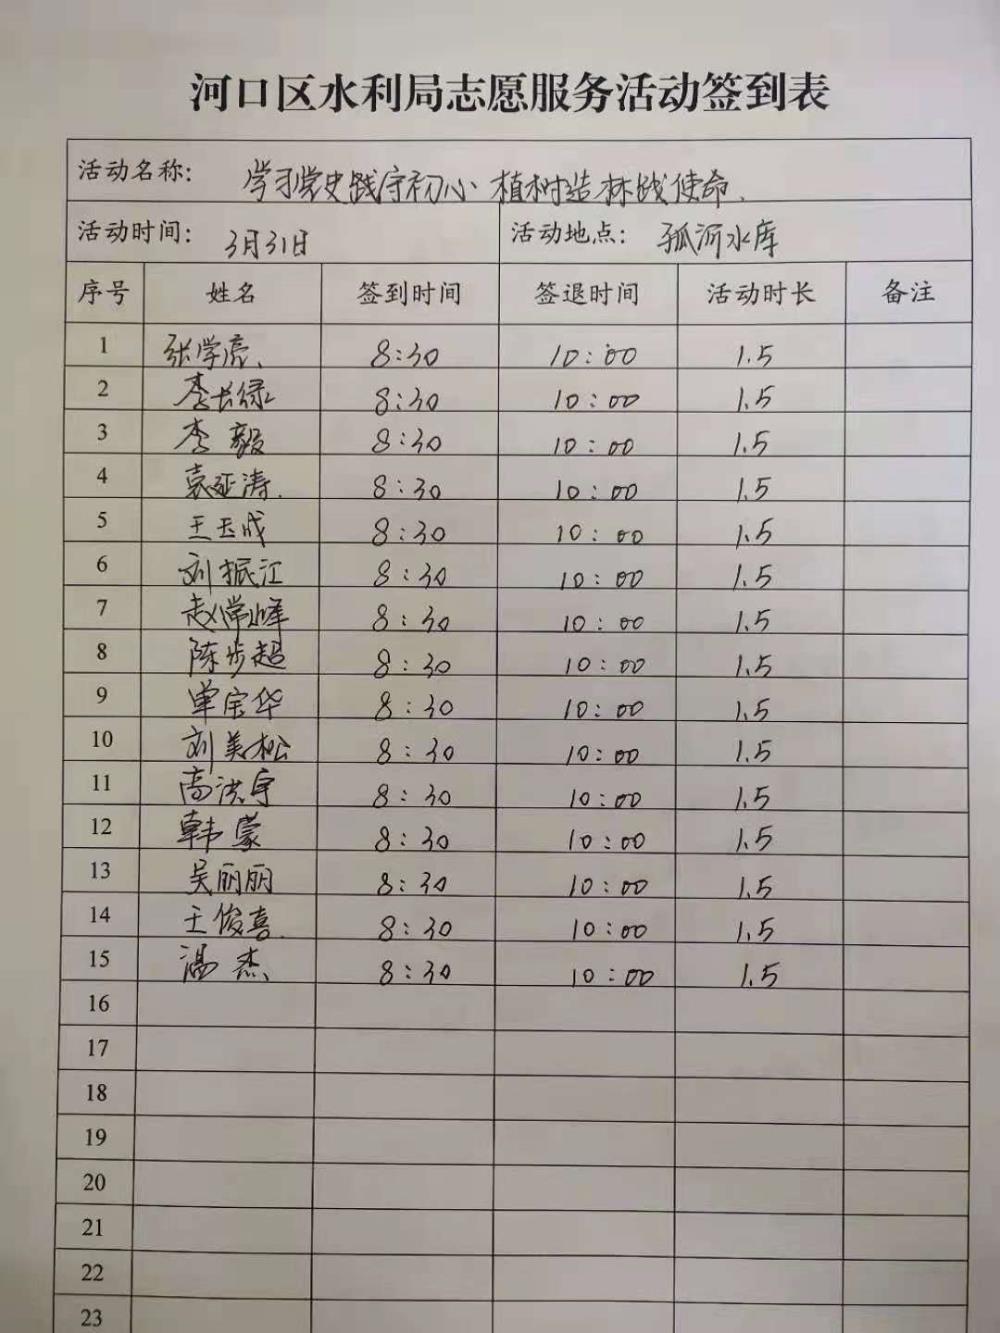 河口区水利局志愿服务活动签到表
活动名称: 学习党史践守初心 植树造林践使命
活动时间: 3月31日 活动地点: 孤河水库
序号 姓名 签到时间 签退时间 活动时长 备注
1 张学亮 8:30 10:00 1.5
2 李长绿 8:30 10:00 1.5
3 李毅 8:30 10:00 1.5
4 袁延涛 8:30 10:00 1.5
5 王玉成 8:30 10:00 1.5
6 刘振江 8:30 10:00 1.5
7 赵常峰 8:30 10:00 1.5
8 陈步超 8:30 10:00 1.5
9 单宝华 8:30 10:00 1.5
10 刘美松 8:30 10:00 1.5
11 高洪宇 8:30 10:00 1.5
12 韩蒙 8:30 10:00 1.5
13 吴丽丽 8:30 10:00 1.5
14 王俊喜 8:30 10:00 1.5
15 温杰 8:30 10:00 1.5
16
17
18
19
20
21
22
23